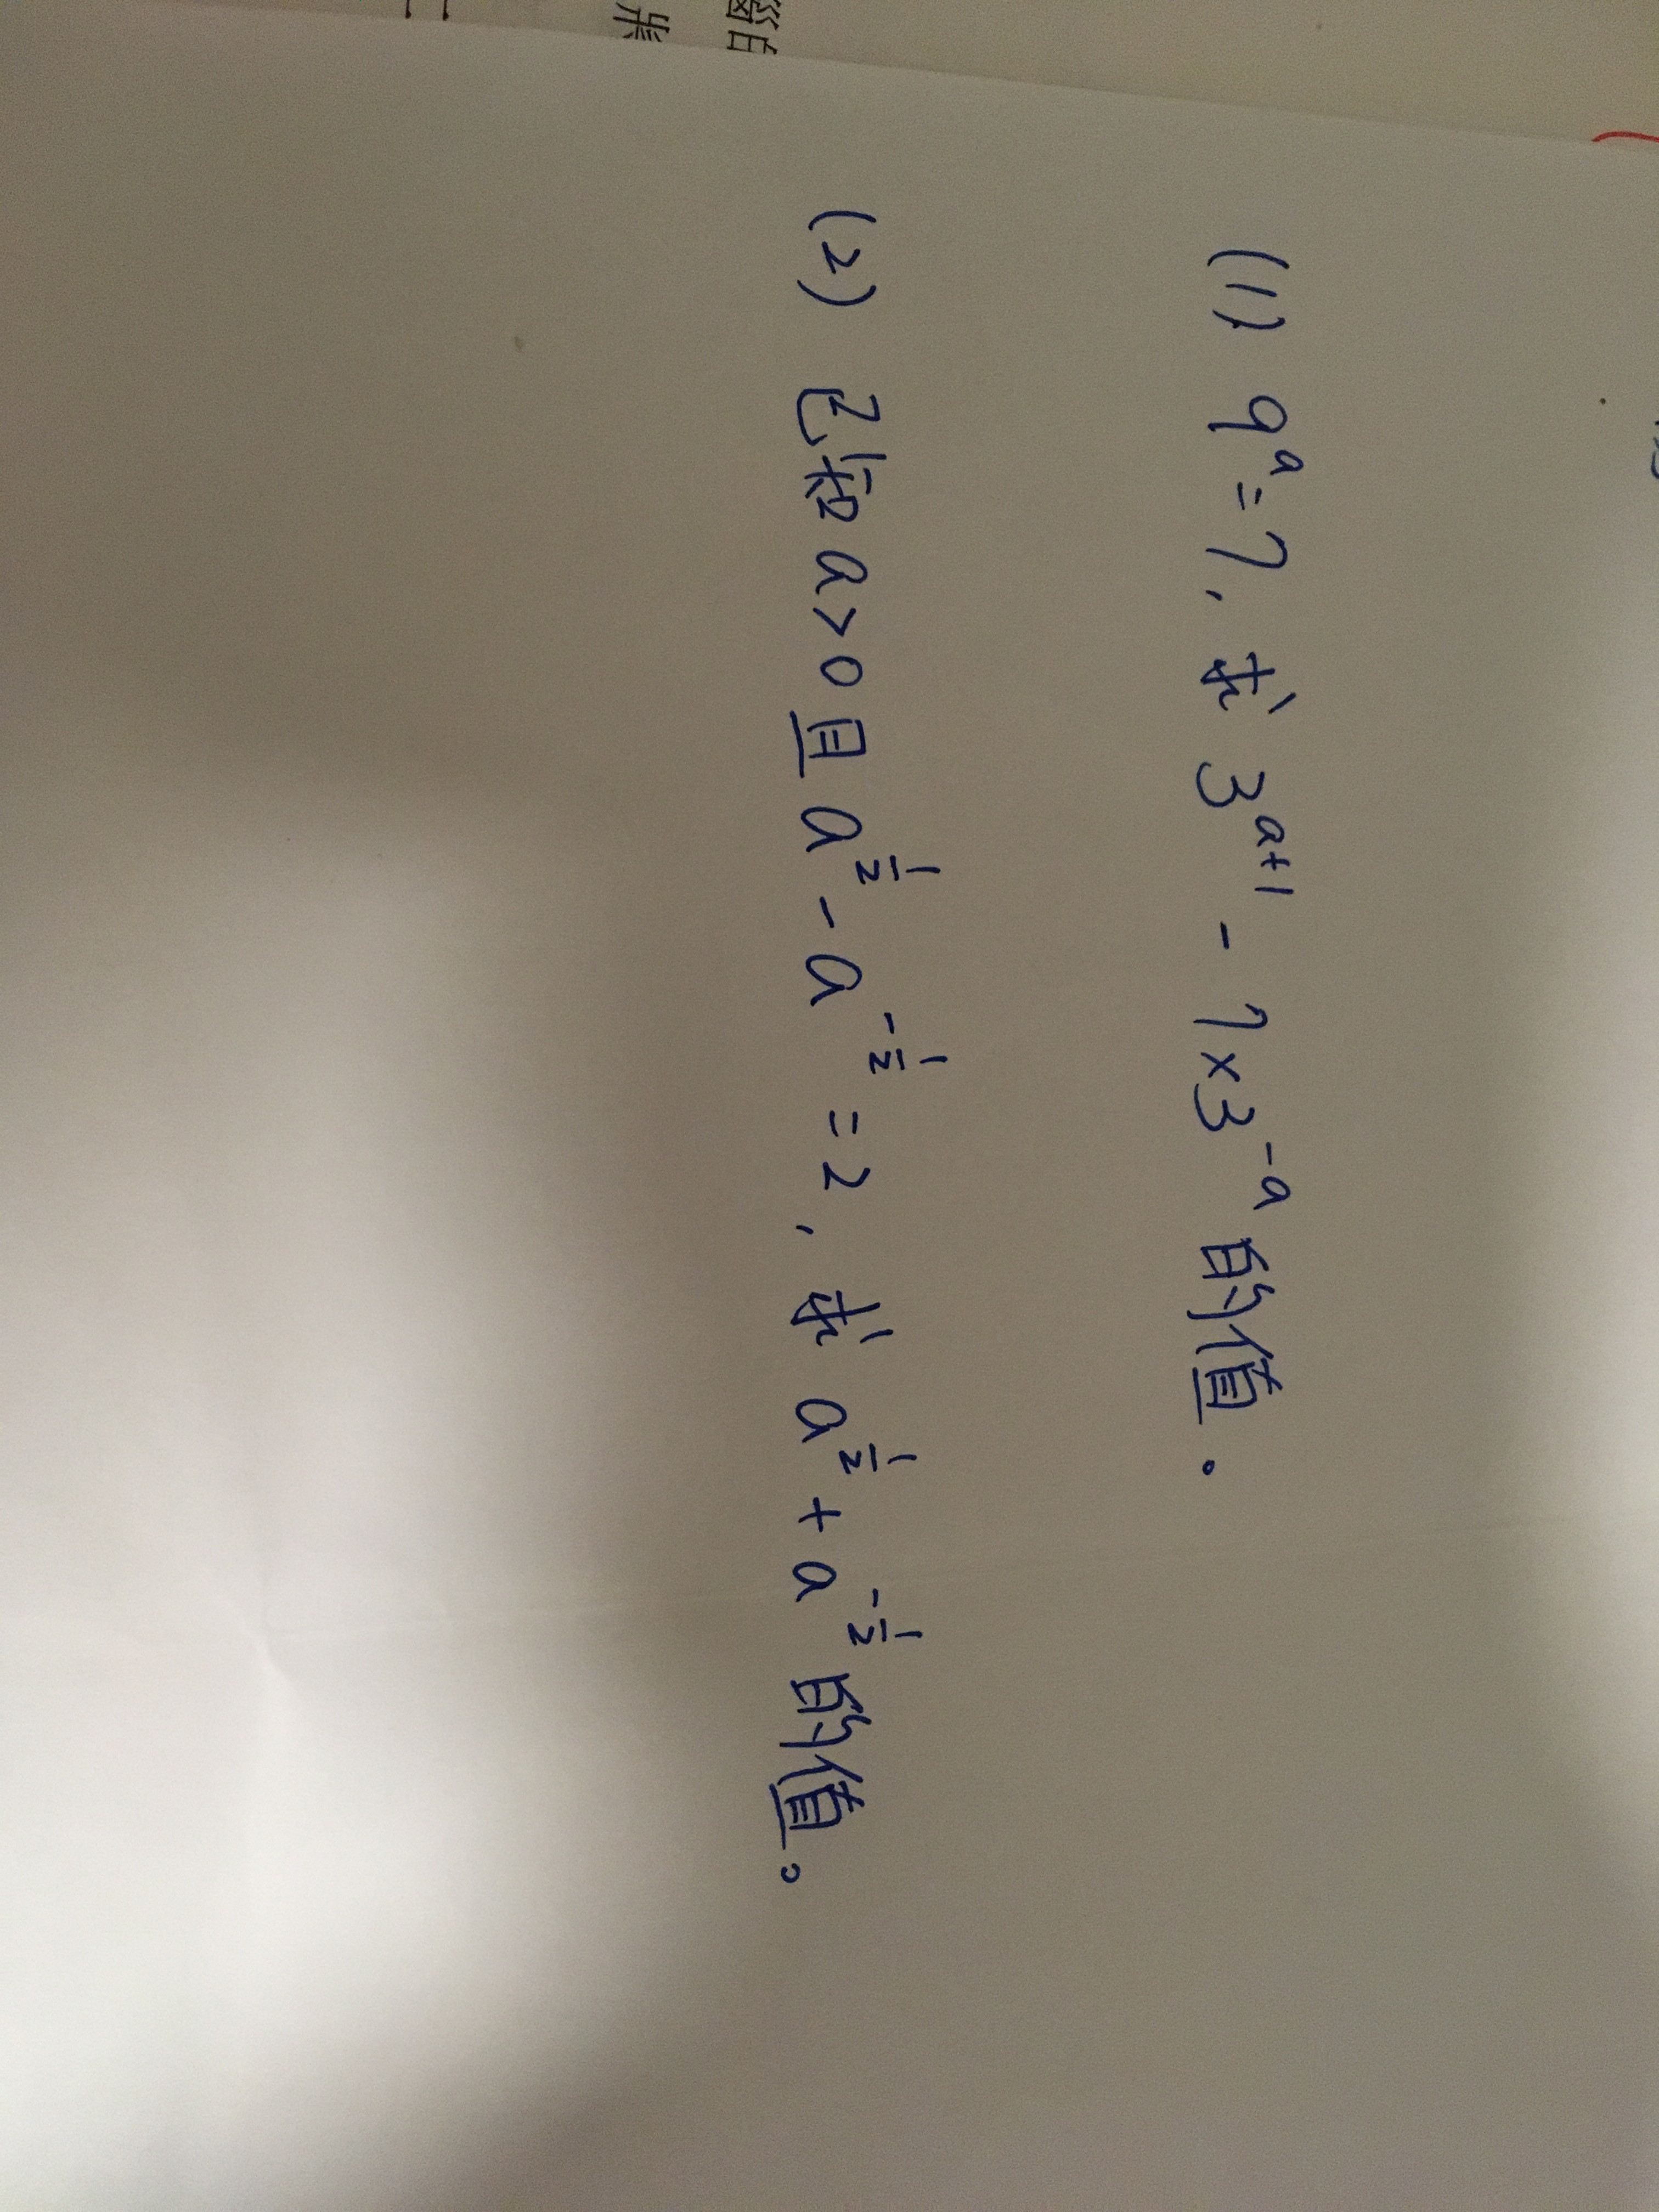 (1) 9^a = 7, 求 3^{a+1} - 7×3^{-a} 的值。
(2) 已知 a>0 且 a^{\frac{1}{2}} - a^{-\frac{1}{2}} = 2, 求 a^{\frac{1}{2}} + a^{-\frac{1}{2}} 的值。